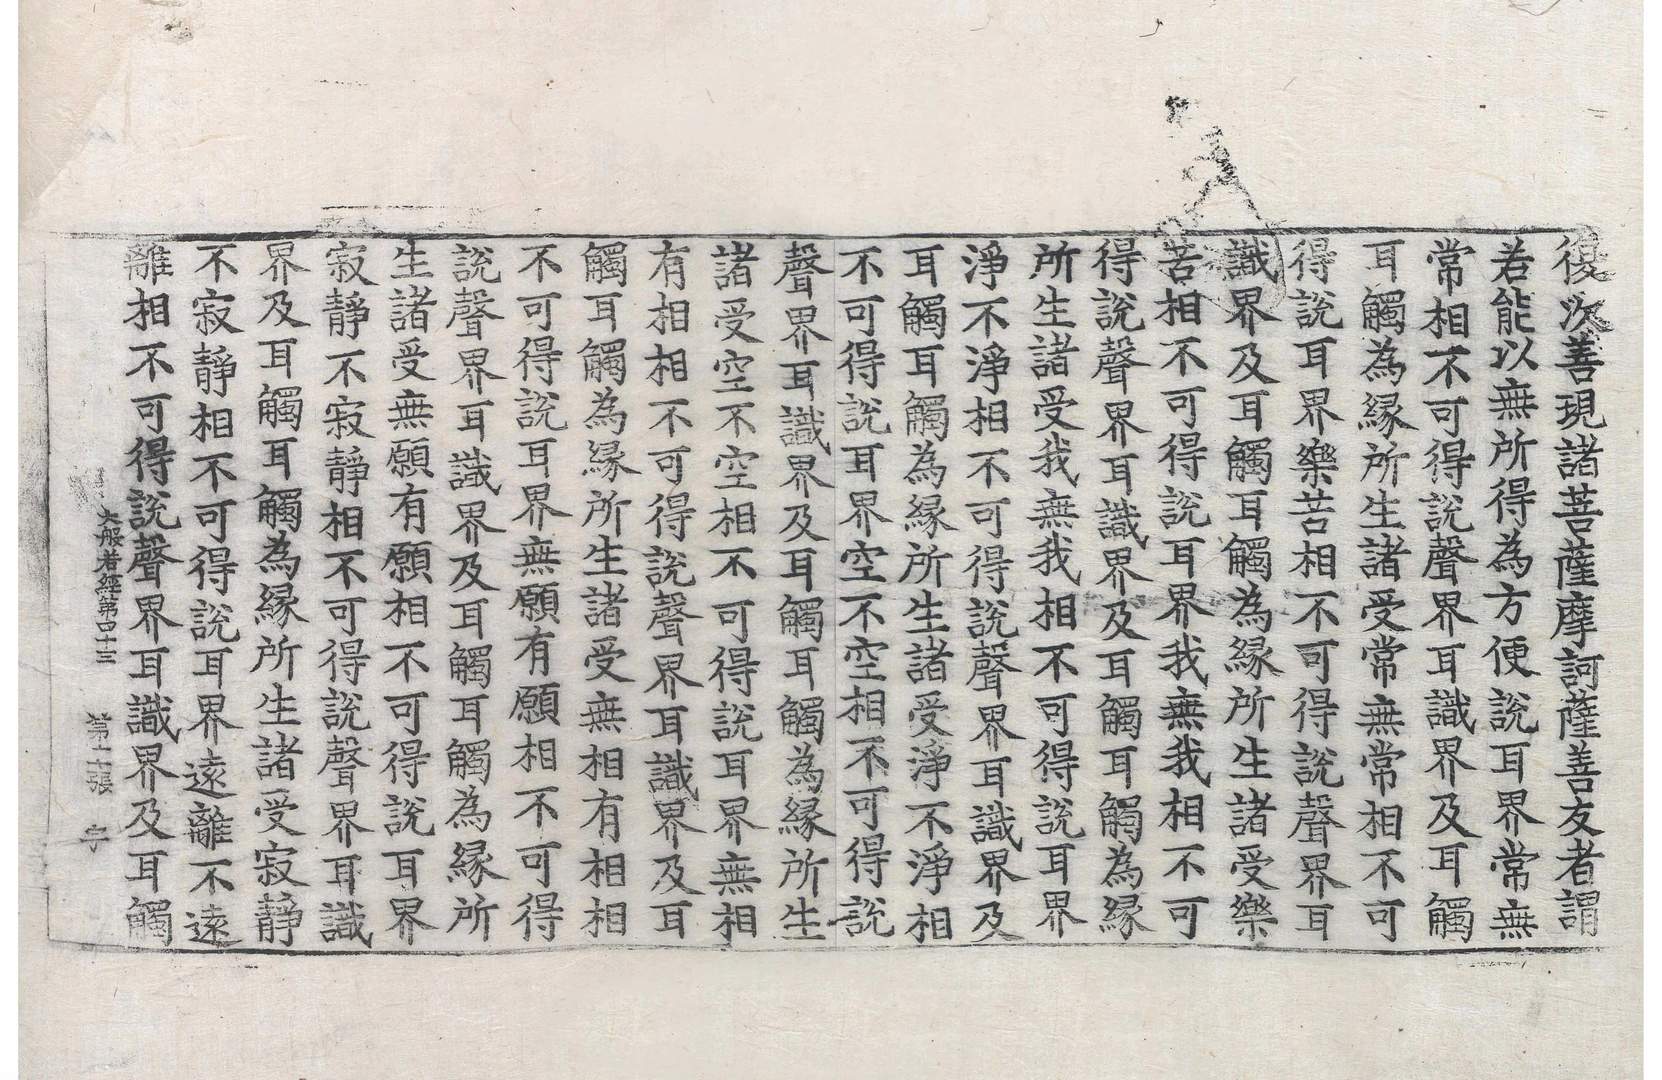 復次善現諸菩薩摩訶薩善友者謂
若能以無所得為方便說耳界常無
常相不可得說聲界耳識界及耳觸
耳觸為緣所生諸受常無常相不可
得說耳界樂苦相不可得說聲界耳
識界及耳觸耳觸為緣所生諸受樂
苦相不可得說耳界我無我相不可
得說聲界耳識界及耳觸耳觸為緣
所生諸受我無我相不可得說耳界
淨不淨相不可得說聲界耳識界及
耳觸耳觸為緣所生諸受淨不淨相
不可得說耳界空不空相不可得說
聲界耳識界及耳觸耳觸為緣所生
諸受空不空相不可得說耳界無相
有相相不可得說聲界耳識界及耳
觸耳觸為緣所生諸受無相有相相
不可得說耳界無願有願相不可得
說聲界耳識界及耳觸耳觸為緣所
生諸受無願有願相不可得說耳界
寂靜不寂靜相不可得說聲界耳識
界及耳觸耳觸為緣所生諸受寂靜
不寂靜相不可得說耳界遠離不遠
離相不可得說聲界耳識界及耳觸
大般若經第四十三 第 張 宇